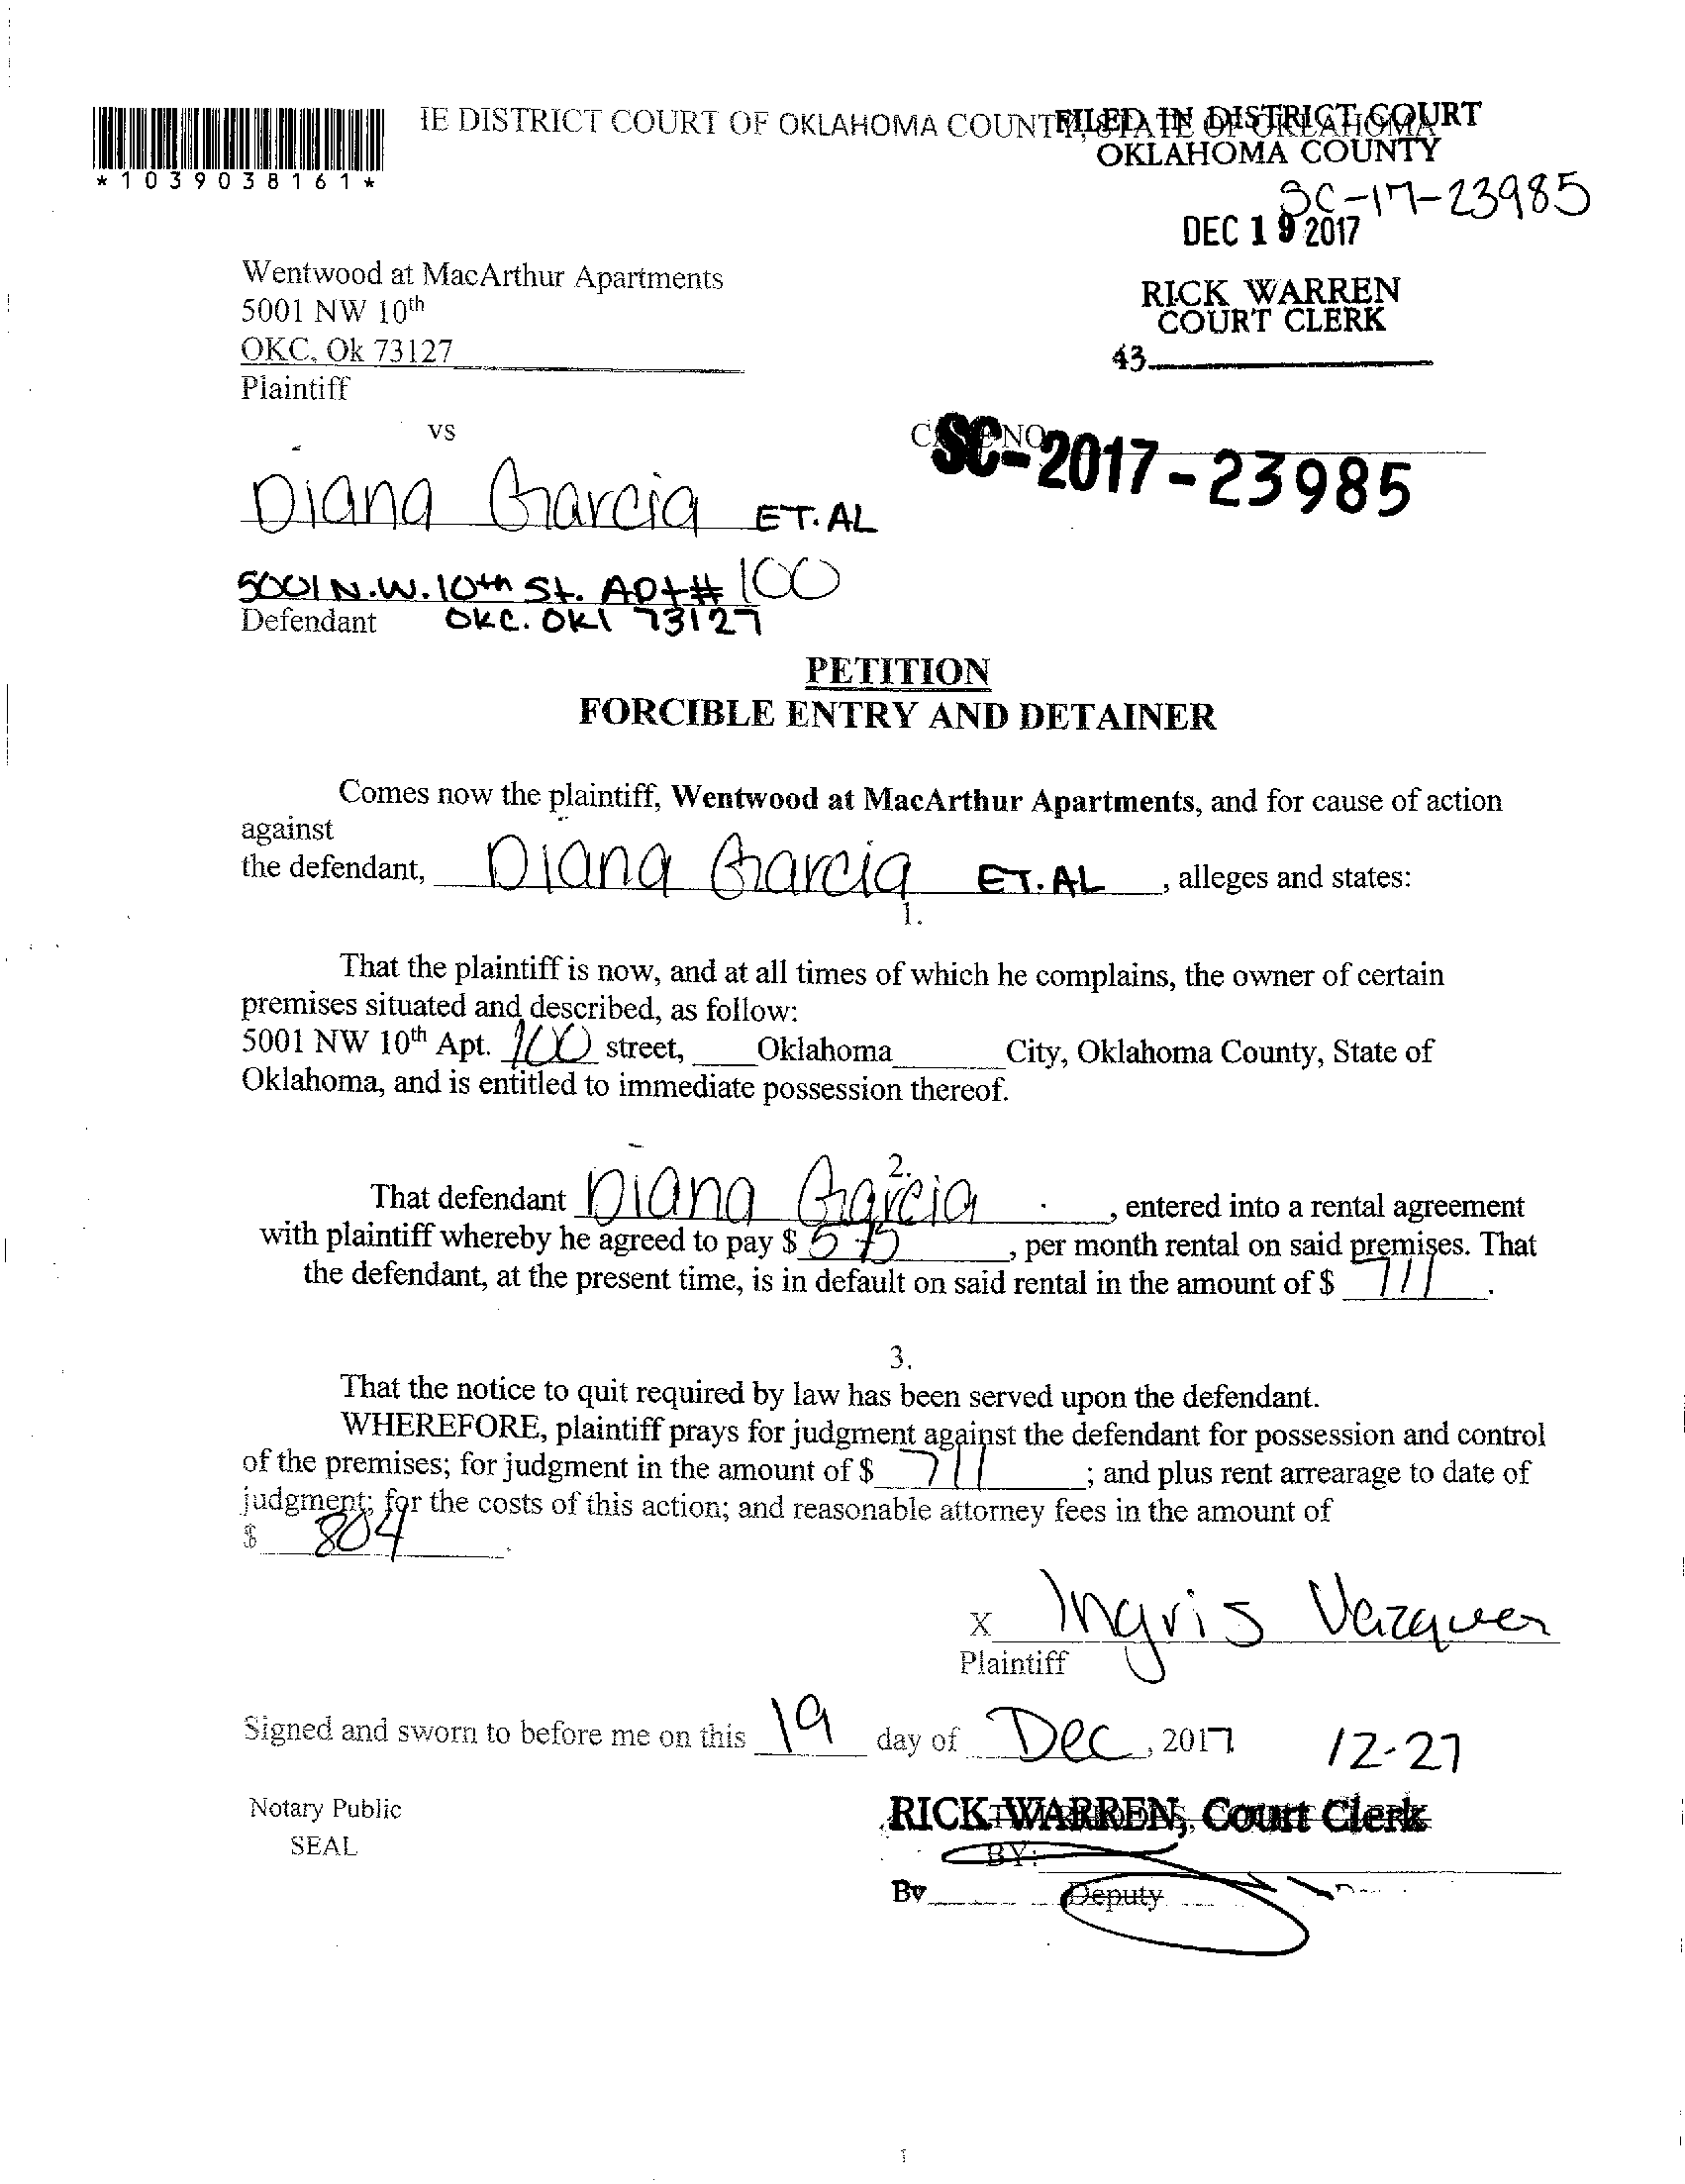 IE DISTRICT COURT OF OKLAHOMA COUNTY, STATE OF OKLAHOMA
FILED IN DISTRICT COURT
OKLAHOMA COUNTY
*1039038161*
SC-17-23985
DEC 19 2017
RICK WARREN
COURT CLERK
43
Wentwood at MacArthur Apartments
5001 NW 10th
OKC, Ok 73127
Plaintiff
vs
CASE NO
SC-2017-23985
Diana Garcia ET.AL
5001 N.W. 10th St. Apt# 100
Defendant OKC. Okl 73127
PETITION
FORCIBLE ENTRY AND DETAINER
Comes now the plaintiff, Wentwood at MacArthur Apartments, and for cause of action
against
the defendant, Diana Garcia ET.AL, alleges and states:
1.
That the plaintiff is now, and at all times of which he complains, the owner of certain
premises situated and described, as follow:
5001 NW 10th Apt. 100 street, Oklahoma City, Oklahoma County, State of
Oklahoma, and is entitled to immediate possession thereof.
2.
That defendant Diana Garcia, entered into a rental agreement
with plaintiff whereby he agreed to pay $ 575, per month rental on said premises. That
the defendant, at the present time, is in default on said rental in the amount of $ 711.
3.
That the notice to quit required by law has been served upon the defendant.
WHEREFORE, plaintiff prays for judgment against the defendant for possession and control
of the premises; for judgment in the amount of $ 711; and plus rent arrearage to date of
judgment; for the costs of this action; and reasonable attorney fees in the amount of
$ 804.
x Ingris Vazquez
Plaintiff
Signed and sworn to before me on this 19 day of Dec, 2017 12-27
Notary Public
SEAL
RICK WARREN, Court Clerk
BY:
By Deputy
1